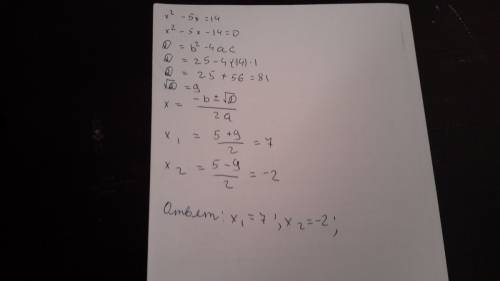 x² - 5x = 14
x² - 5x - 14 = 0
D = b² - 4ac
D = 25 - 4·(14)·1
D = 25 + 56 = 81
√D = 9
x = (-b ± √D) / 2a
x₁ = (5 + 9) / 2 = 7
x₂ = (5 - 9) / 2 = -2
Ответ: x₁ = 7; x₂ = -2;